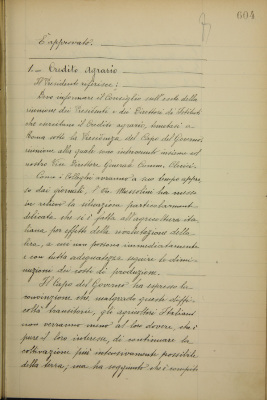 604
È approvato.
1.- Credito agrario
Il Presidente riferisce:
Devo informare il Consiglio sull'esito della
riunione dei Presidenti e dei Direttori di Istituti
che esercitano il Credito agrario, tenutasi a
Roma sotto la Presidenza del Capo del Governo,
riunione alla quale sono intervenuto insieme al
nostro Vice Direttore Generale Comm.
Come i Colleghi avranno a suo tempo appre-
so dai giornali, l'On. Mussolini ha messo
in rilievo la situazione particolarmente
delicata che si è fatta all'agricoltura ita-
liana per effetti della rivalutazione della
lira, a cui non possono immediatamente
e con tutta adeguatezza seguire le dimi-
nuzioni dei costi di produzione.
Il Capo del Governo ha espresso la
convinzione che, malgrado queste diffi-
coltà transitorie, gli agricoltori italiani
non verranno meno al loro dovere, che è
pure il loro interesse, di continuare la
coltivazione più intensivamente possibile
della terra, ma ha soggiunto che è compito